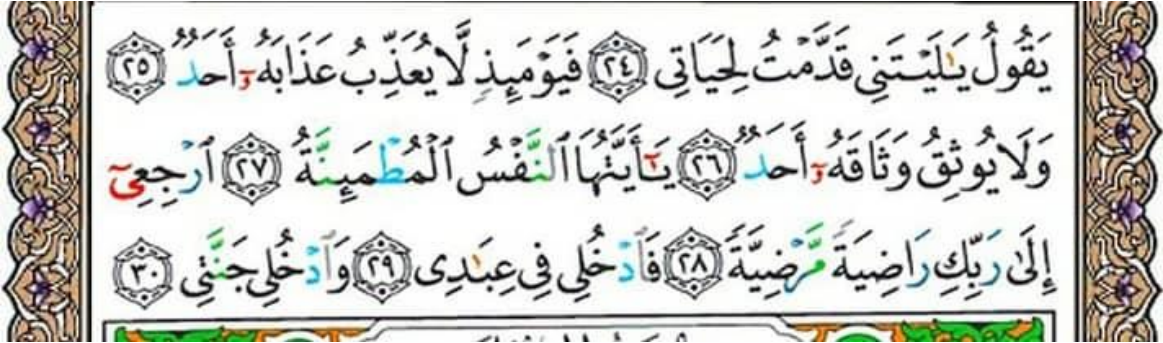 يَقُولُ يَـٰلَيۡتَنِي قَدَّمۡتُ لِحَيَاتِي ٢٤ فَيَوۡمَئِذٖ لَّا يُعَذِّبُ عَذَابَهُۥٓ أَحَدٞ ٢٥
وَلَا يُوثِقُ وَثَاقَهُۥٓ أَحَدٞ ٢٦ يَـٰٓأَيَّتُهَا ٱلنَّفۡسُ ٱلۡمُطۡمَئِنَّةُ ٢٧ ٱرۡجِعِيٓ
إِلَىٰ رَبِّكِ رَاضِيَةٗ مَّرۡضِيَّةٗ ٢٨ فَٱدۡخُلِي فِي عِبَـٰدِي ٢٩ وَٱدۡخُلِي جَنَّتِي ٣٠